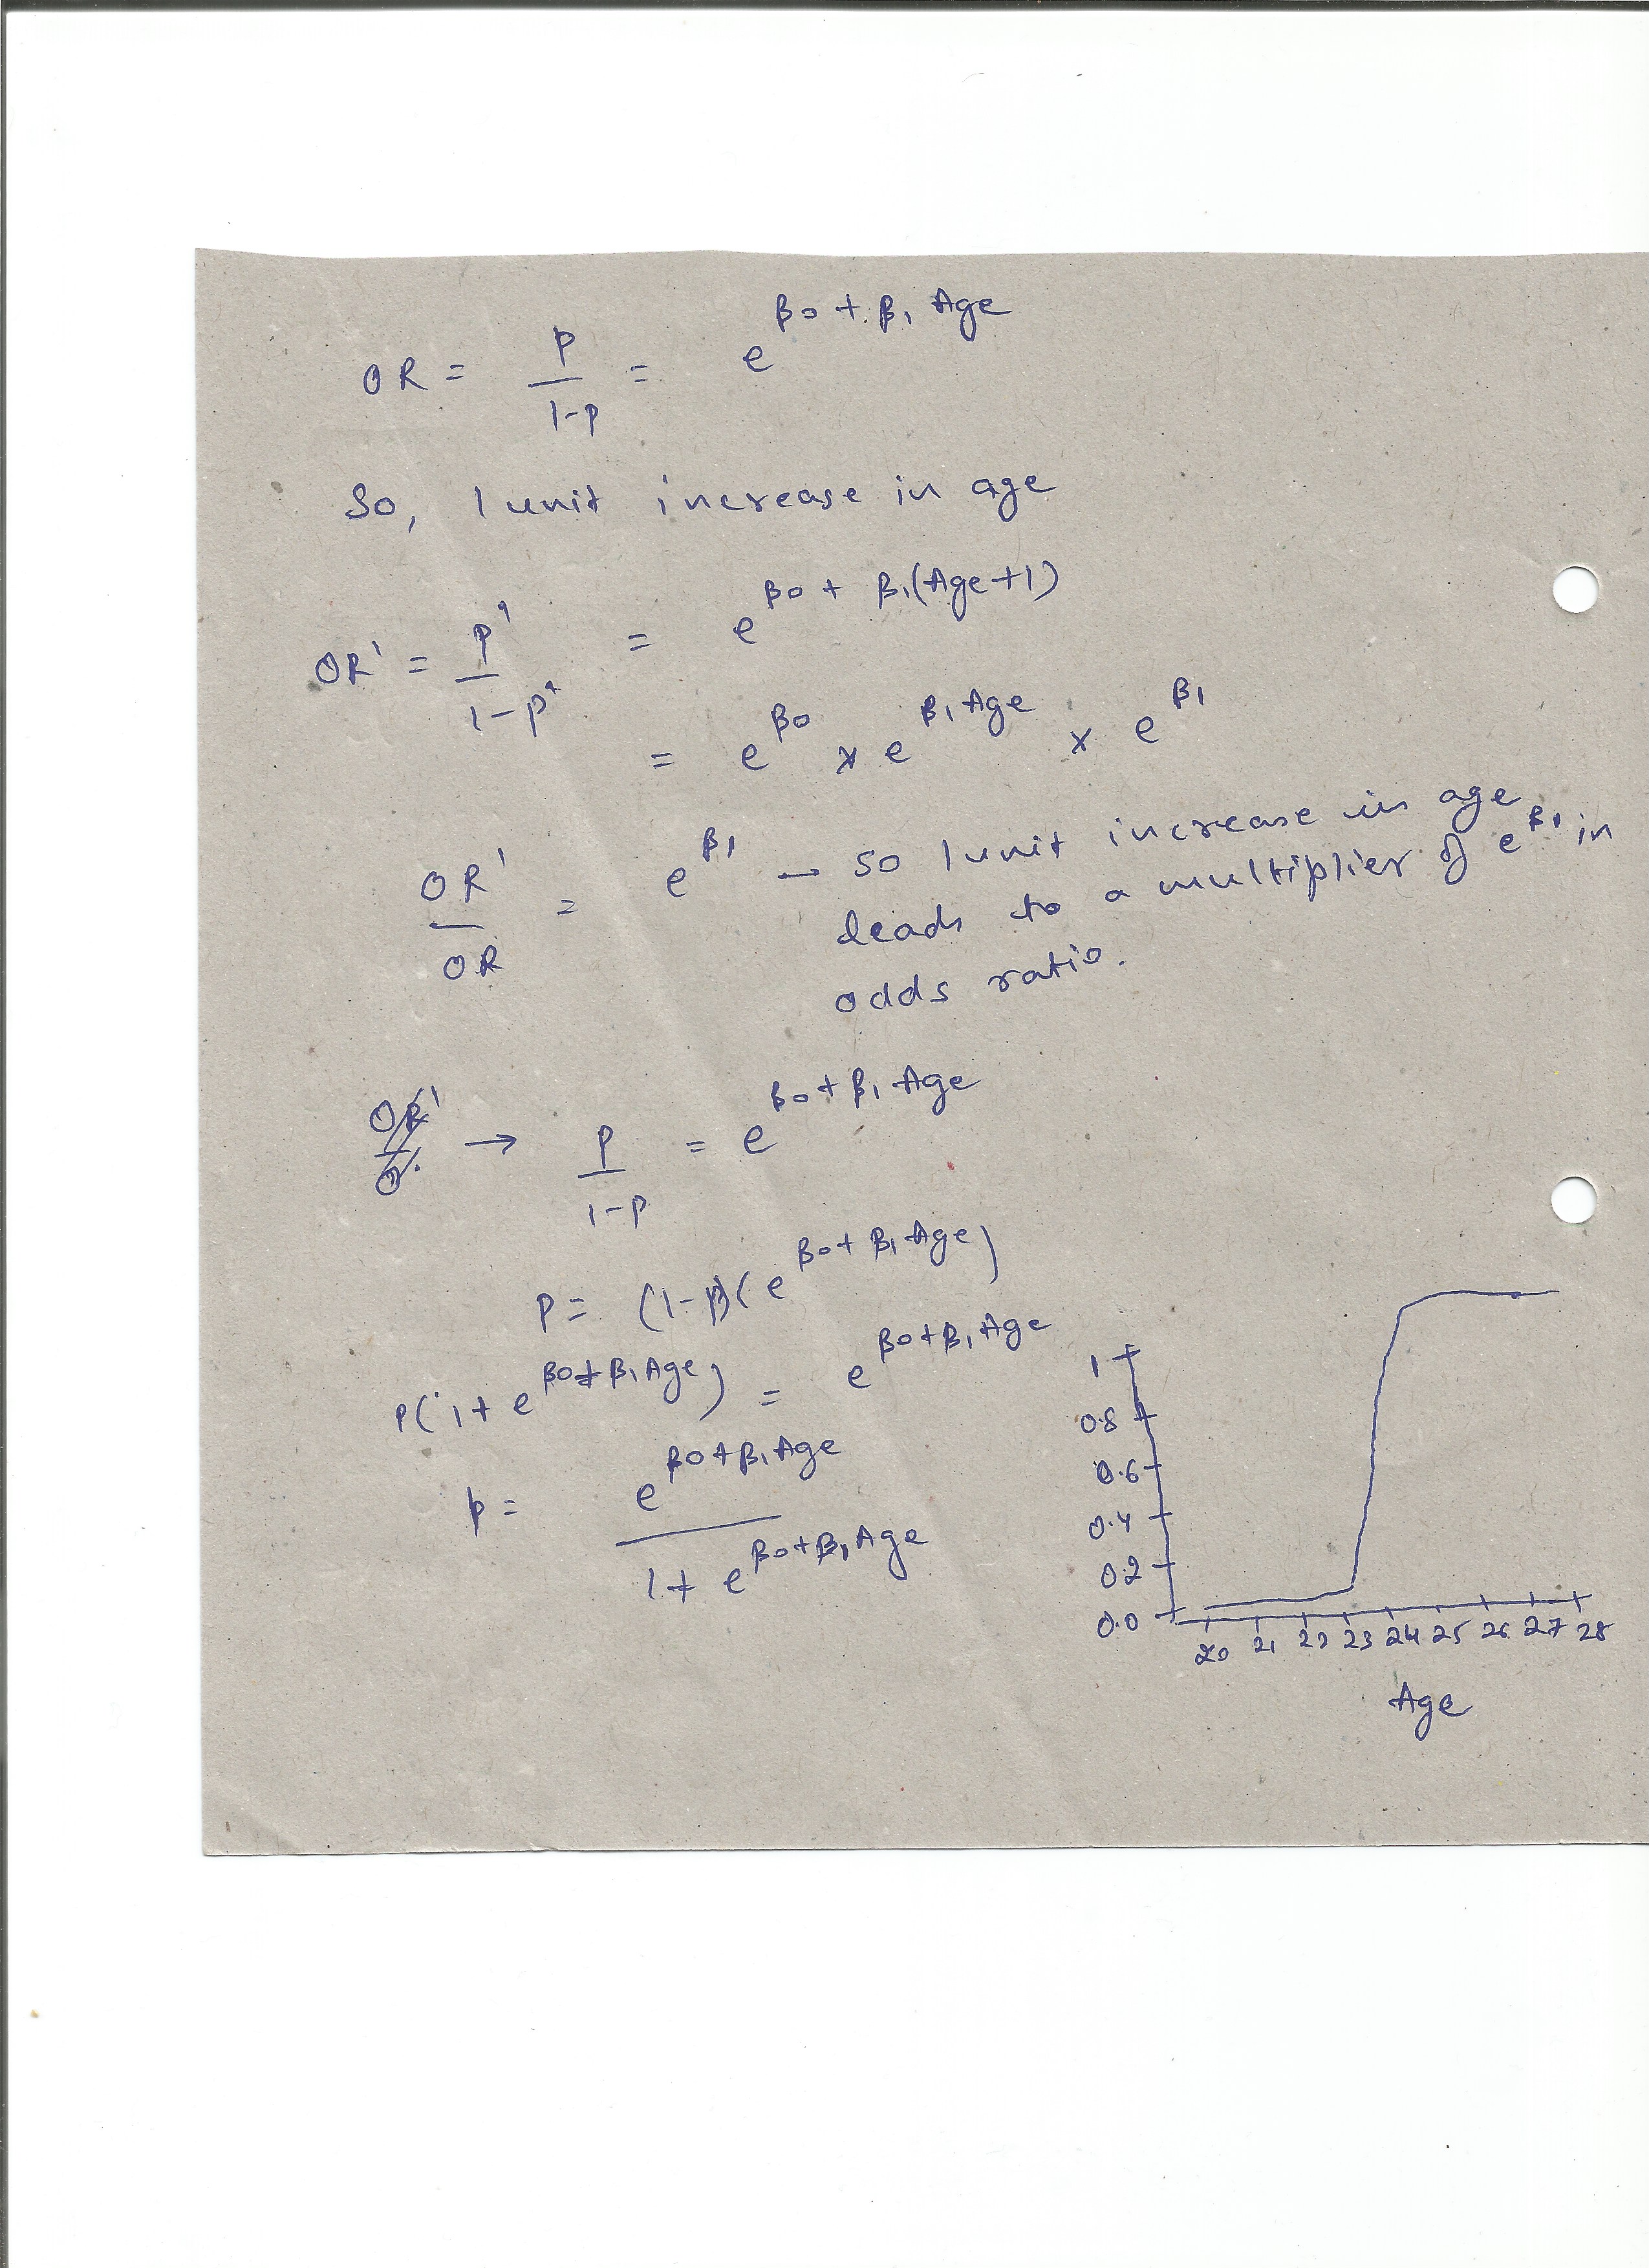 OR = p/1-p = e^β0 + β1 Age
So, 1 unit increase in age
OR' = p'/1-p' = e^β0 + β1(Age+1)
= e^β0 x e^β1 Age x e^β1
OR'/OR = e^β1 – so 1 unit increase in age
leads to a multiplier of e^β1 in
odds ratio.
→ p/1-p = e^β0+β1 Age
p = (1-p)(e^β0+β1 Age)
p(1+e^β0+β1 Age) = e^β0+β1 Age
p = e^β0+β1 Age/1+e^β0+β1 Age
1
0.8
0.6
0.4
0.2
0.0
20 21 22 23 24 25 26 27 28
Age